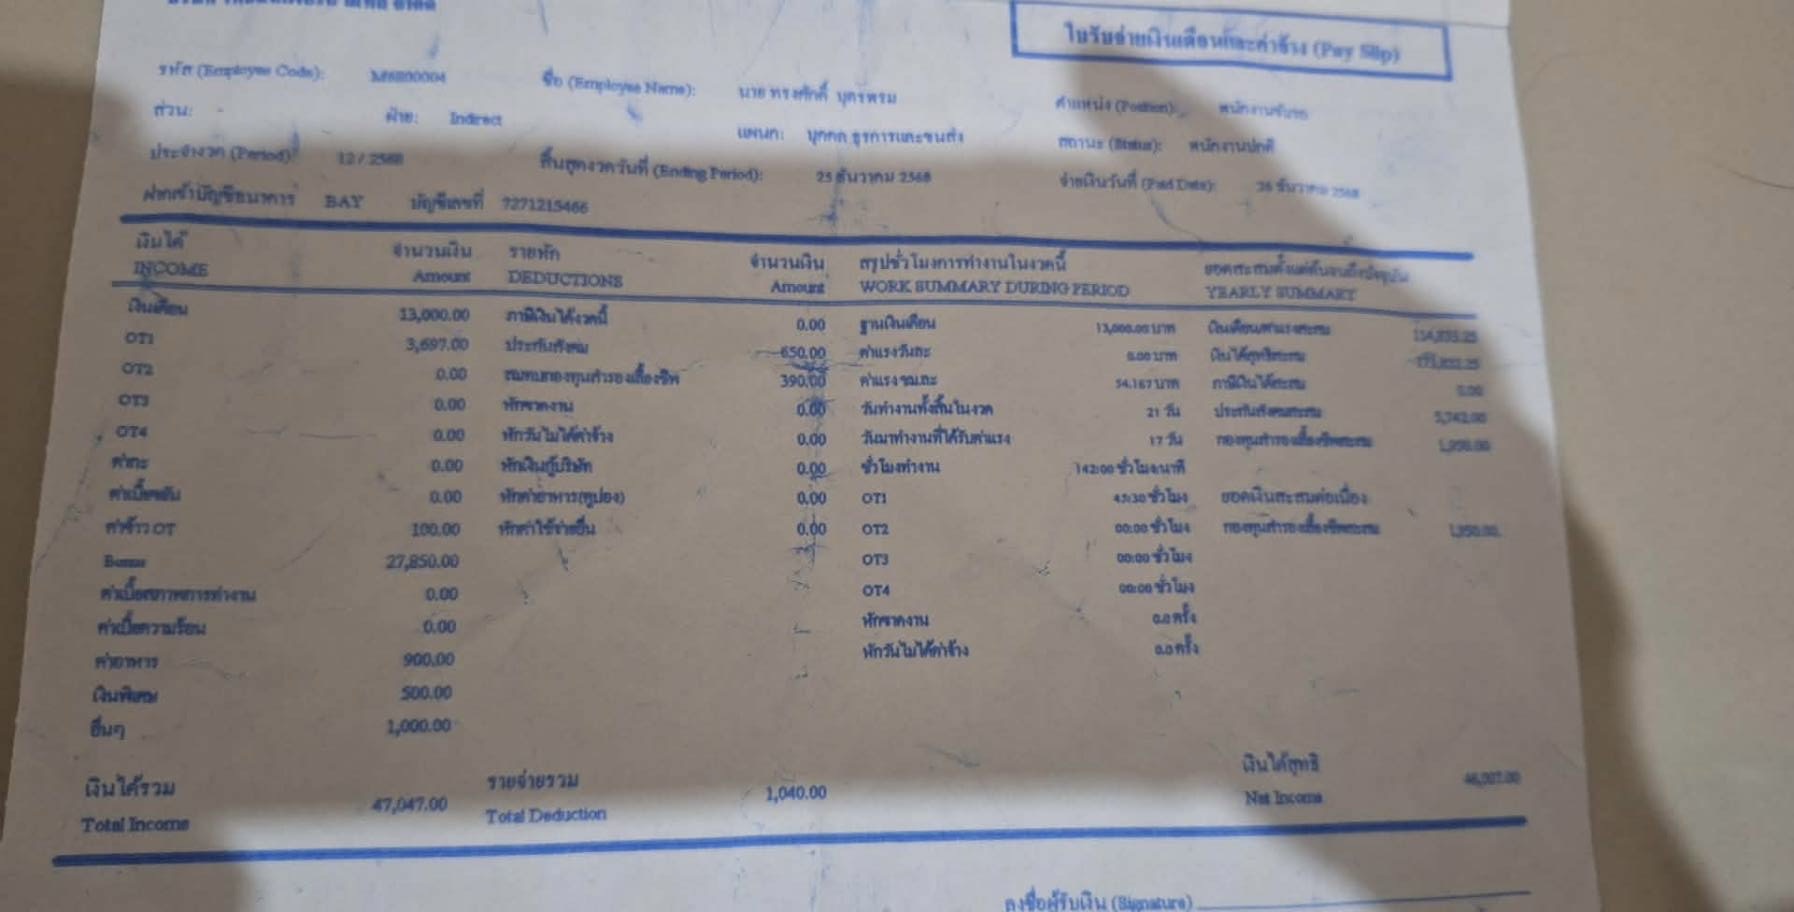 ใบรับจ่ายเงินเดือนและค่าจ้าง (Pay Slip)
รหัส (Employee Code): ชื่อ (Employee Name): นาย ทรงศักดิ์ บุตรพรม ตำแหน่ง (Position): พนักงานขับรถ
ส่วน: - ฝ่าย: Indirect แผนก: บุคคล ธุรการและขนส่ง สถานะ (Status): พนักงานปกติ
ประจำงวด (Period): 12 / 2568 สิ้นสุดงวดวันที่ (Ending Period): 25 ธันวาคม 2568 จ่ายเงินวันที่ (Paid Date): 26 ธันวาคม 2568
ฝากเข้าบัญชีธนาคาร BAY บัญชีเลขที่ 7271215466
เงินได้ จำนวนเงิน รายหัก จำนวนเงิน สรุปชั่วโมงการทำงานในงวดนี้ ยอดสะสมตั้งแต่ต้นจนถึงปัจจุบัน
INCOME Amount DEDUCTIONS Amount WORK SUMMARY DURING PERIOD YEARLY SUMMARY
เงินเดือน 13,000.00 ภาษีเงินได้งวดนี้ 0.00 ฐานเงินเดือน 13,000.00 บาท เงินเดือน/ค่าแรงสะสม
OT1 3,697.00 ประกันสังคม 650.00 ค่าแรงวันละ 0.00 บาท เงินได้สุทธิสะสม
OT2 0.00 สมทบกองทุนสำรองเลี้ยงชีพ 390.00 ค่าแรง ชม.ละ 54.167 บาท ภาษีเงินได้สะสม 0.00
OT3 0.00 หักขาดงาน 0.00 วันทำงานทั้งสิ้นในงวด 21 วัน ประกันสังคมสะสม
OT4 0.00 หักวันไม่ได้ค่าจ้าง 0.00 วันมาทำงานที่ได้รับค่าแรง 17 วัน กองทุนสำรองเลี้ยงชีพสะสม 1,950.00
ค่ากะ 0.00 หักเงินกู้บริษัท 0.00 ชั่วโมงทำงาน 142:00 ชั่วโมง:นาที
ค่าเบี้ยขยัน 0.00 หักค่าอาหาร(คูปอง) 0.00 OT1 45:30 ชั่วโมง ยอดเงินสะสมต่อเนื่อง
ค่าข้าว OT 100.00 หักค่าใช้จ่ายอื่น 0.00 OT2 00:00 ชั่วโมง กองทุนสำรองเลี้ยงชีพสะสม 1,950.00
Bonus 27,850.00 OT3 00:00 ชั่วโมง
ค่าเบี้ยสภาพการทำงาน 0.00 OT4 00:00 ชั่วโมง
ค่าเบี้ยความร้อน 0.00 หักขาดงาน 0.0 ครั้ง
ค่าอาหาร 900.00 หักวันไม่ได้ค่าจ้าง 0.0 ครั้ง
เงินพิเศษ 500.00
อื่นๆ 1,000.00
เงินได้รวม 47,047.00 รายจ่ายรวม 1,040.00 เงินได้สุทธิ 46,007.00
Total Income Total Deduction Net Income
ลงชื่อผู้รับเงิน (Signature)